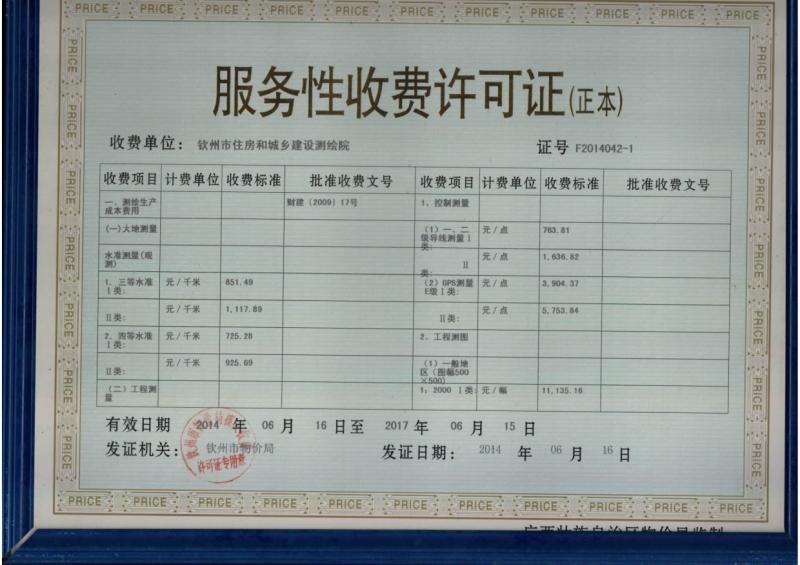 PRICE PRICE PRICE PRICE PRICE PRICE PRICE PRICE PRICE PRICE PRICE
服务性收费许可证(正本)
收费单位: 钦州市住房和城乡建设测绘院 证号 F2014042-1
收费项目 计费单位 收费标准 批准收费文号 收费项目 计费单位 收费标准 批准收费文号
一、测绘生产成本费用 财建〔2009〕17号 1、控制测量
(一)大地测量 (1)一、二级导线测量Ⅰ类: 元/点 763.81
水准测量(观测) Ⅱ类: 元/点 1,636.82
1、三等水准Ⅰ类: 元/千米 851.49 (2)GPS测量E级Ⅰ类: 元/点 3,904.37
Ⅱ类: 元/千米 1,117.89 Ⅱ类: 元/点 5,753.84
2、四等水准Ⅰ类: 元/千米 725.28 2、工程测图
Ⅱ类: 元/千米 925.69 (1)一般地区(图幅500×500)
(二)工程测量 1:2000 Ⅰ类: 元/幅 11,135.16
有效日期 2014 年 06 月 16 日至 2017 年 06 月 15 日
发证机关: 钦州市物价局 发证日期: 2014 年 06 月 16 日
许可证专用章
PRICE PRICE PRICE PRICE PRICE PRICE PRICE PRICE PRICE PRICE PRICE
广西壮族自治区物价局监制